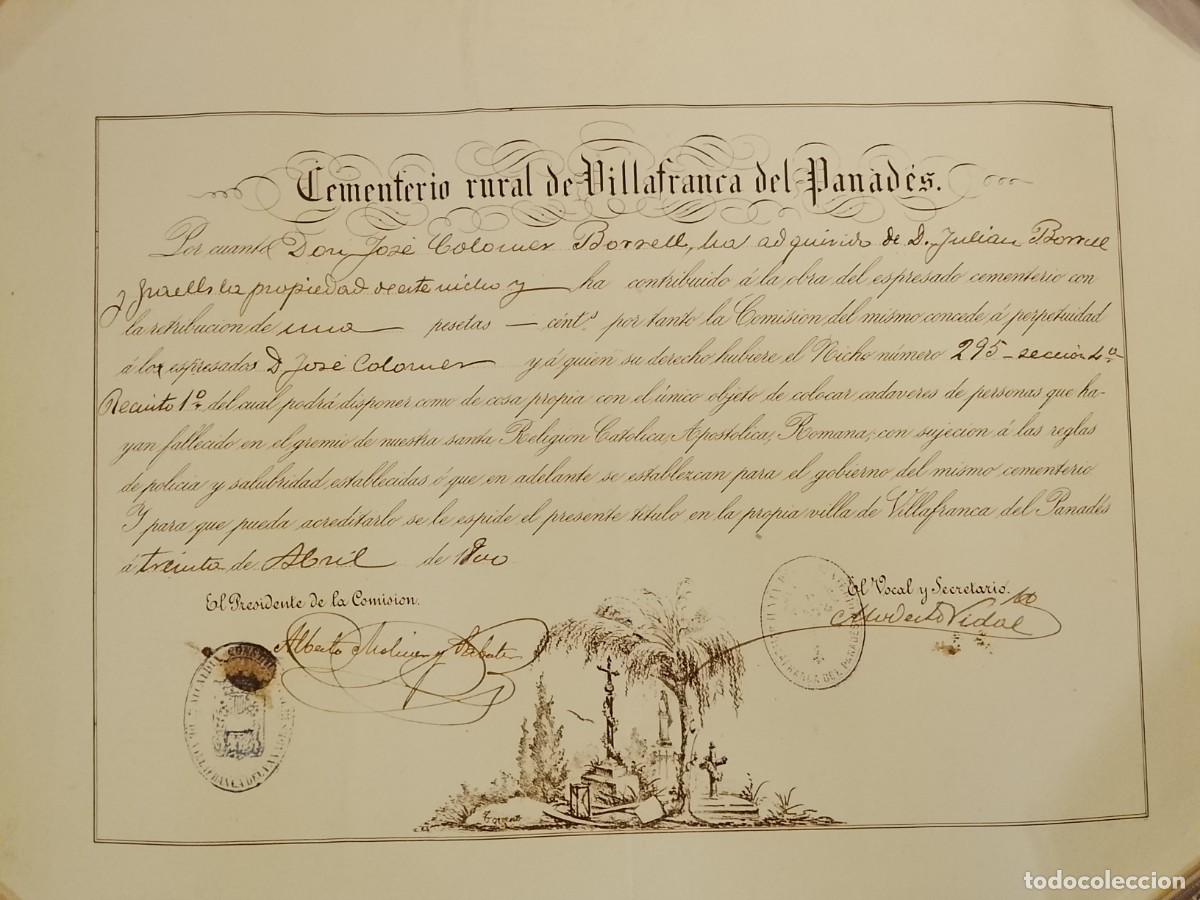 Cementerio rural de Villafranca del Panadés.
Por cuanto Don José Colomer Borrell, ha adquirido de D. Julian Borrell
y la propiedad de este nicho y ha contribuido á la obra del espresado cementerio con
la retribucion de una pesetas — cént.s por tanto la Comision del mismo concede á perpetuidad
á los espresados D. José Colomer y á quien su derecho hubiere el Nicho número 295 - seccion 4ª
Recinto 1º del cual podrá disponer como de cosa propia con el único objeto de colocar cadaveres de personas que ha-
yan fallecido en el gremio de nuestra santa Religion Católica, Apostolica, Romana; con sujecion á las reglas
de policia y salubridad establecidas ó que en adelante se establezcan para el gobierno del mismo cementerio
Y para que pueda acreditarlo se le espide el presente titulo en la propia villa de Villafranca del Panadés
á treinta de Abril de 1900
El Presidente de la Comision.
El Vocal y Secretario.
Alberto
Modesto Vidal
VILLAFRANCA DEL PANADES
todocoleccion